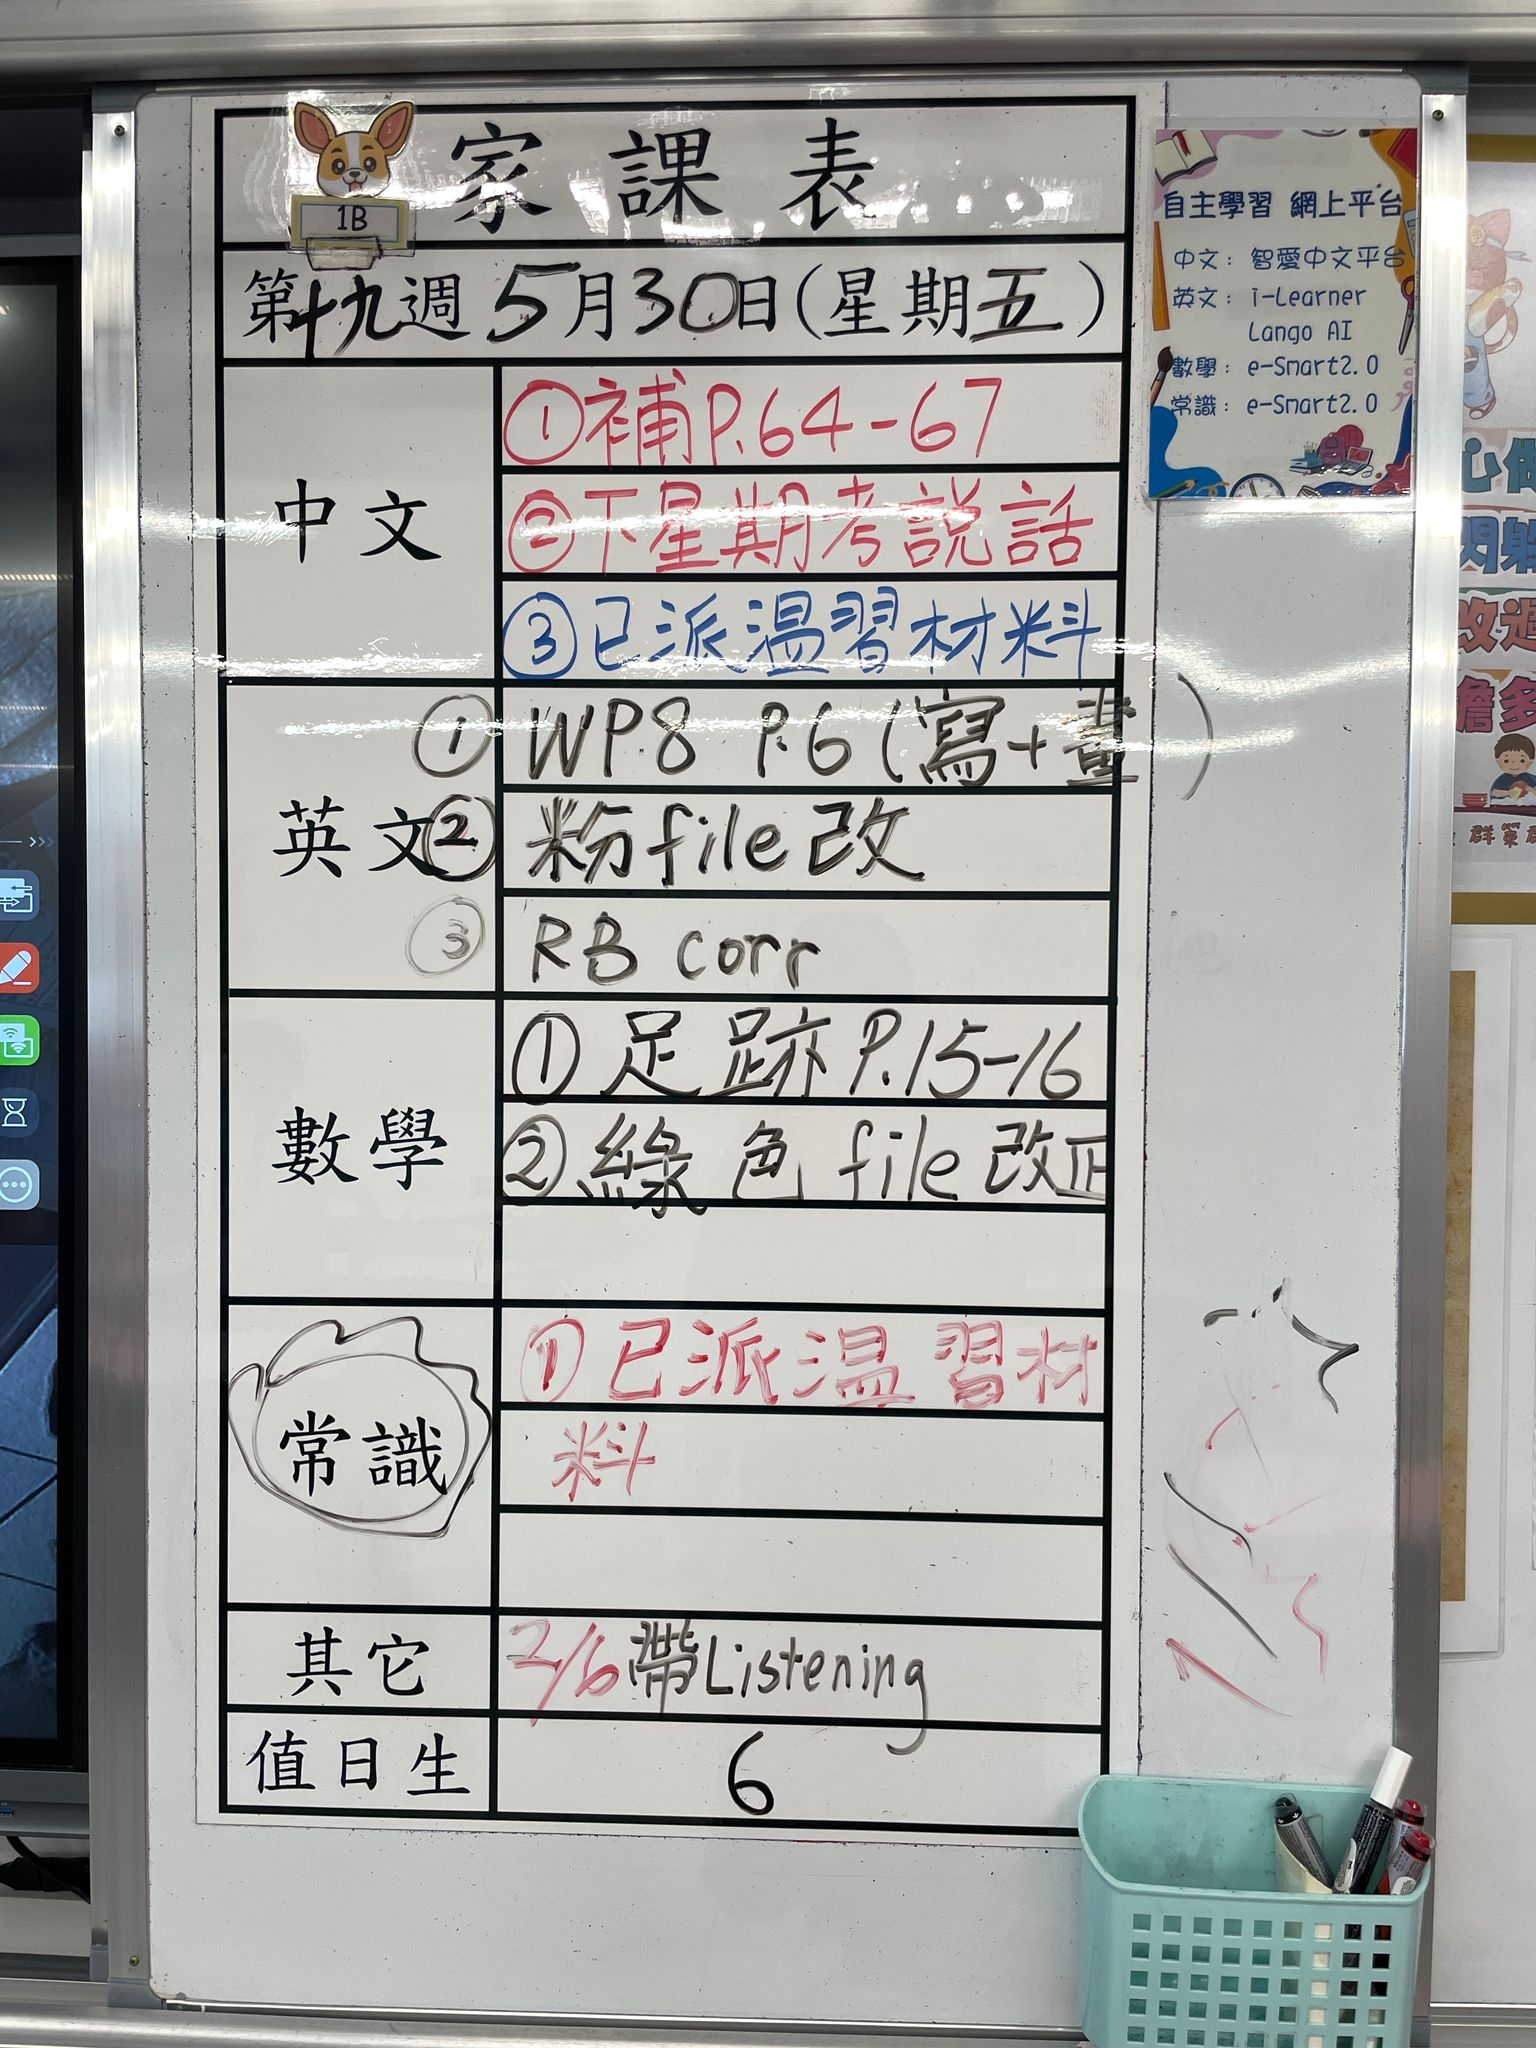 家課表
1B
第十九週 5月30日(星期五)
中文
①補P.64-67
②下星期考説話
③已派溫習材料
英文
① WP8 P.6(寫+畫)
② 粉file改
③ RB corr
數學
①足跡P.15-16
②綠色file改正
常識
①已派溫習材
料
其它
2/6帶Listening
值日生
6
自主學習 網上平台
中文：智愛中文平台
英文：i-Learner
Lango AI
數學：e-Smart2.0
常識：e-Smart2.0